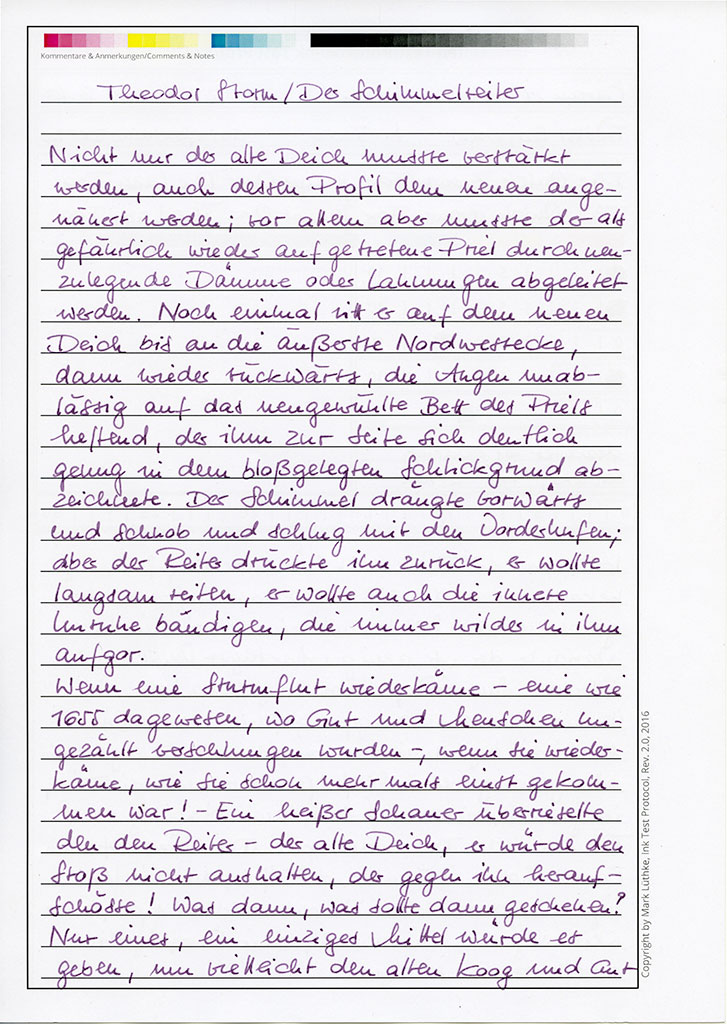 Kommentare & Anmerkungen/Comments & Notes
Theodor Storm/Der Schimmelreiter
Nicht nur der alte Deich musste verstärkt
werden, auch dessen Profil dem neuen ange-
nähert werden; vor allem aber musste der als
gefährlich wieder aufgetretene Priel durch neu-
zulegende Dämme oder Lahnungen abgeleitet
werden. Noch einmal ritt er auf dem neuen
Deich bis an die äußerste Nordwestecke,
dann wieder rückwärts, die Augen unab-
lässig auf das neugewühlte Bett des Priels
heftend, der ihm zur Seite sich deutlich
genug in dem bloßgelegten Schlickgrund ab-
zeichnete. Der Schimmel drängte vorwärts
und schnob und schlug mit den Vorderhufen;
aber der Reiter drückte ihn zurück, er wollte
langsam reiten, er wollte auch die innere
Unruhe bändigen, die immer wilder in ihm
aufgor.
Wenn eine Sturmflut wiederkäme – eine wie
1655 dagewesen, wo Gut und Menschen un-
gezählt verschlungen wurden –, wenn sie wieder-
käme, wie sie schon mehrmals einst gekom-
men war! – Ein heißer Schauer überrieselte
den den Reiter – der alte Deich, er würde den
Stoß nicht aushalten, der gegen ihn herauf-
schösse! Was dann, was sollte dann geschehen?
Nur eines, ein einziges Mittel würde es
geben, um vielleicht den alten Koog und Gut
Copyright by Mark Lüthke, Ink Test Protocol, Rev. 2.0, 2016